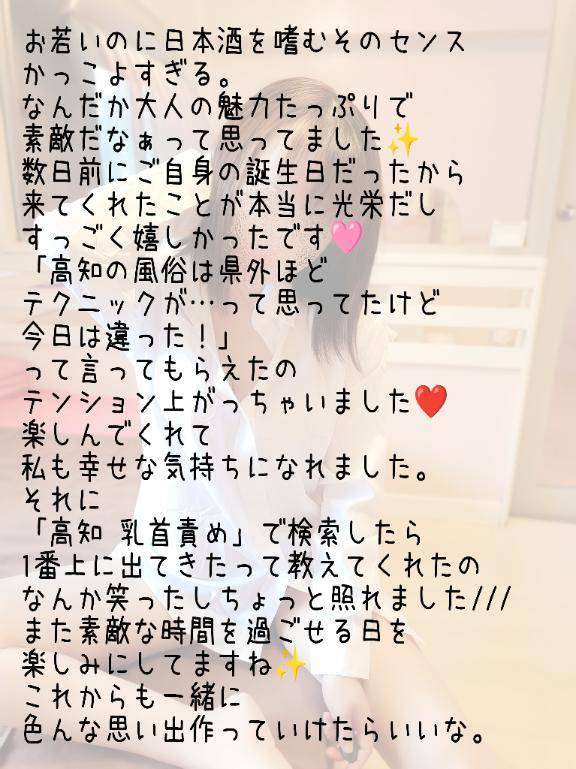 お若いのに日本酒を嗜むそのセンス
かっこよすぎる。
なんだか大人の魅力たっぷりで
素敵だなぁって思ってました✨
数日前にご自身の誕生日だったから
来てくれたことが本当に光栄だし
すっごく嬉しかったです🩷
「高知の風俗は県外ほど
テクニックが…って思ってたけど
今日は違った！」
って言ってもらえたの
テンション上がっちゃいました❤️
楽しんでくれて
私も幸せな気持ちになれました。
それに
「高知 乳首責め」で検索したら
1番上に出てきたって教えてくれたの
なんか笑ったしちょっと照れました///
また素敵な時間を過ごせる日を
楽しみにしてますね✨
これからも一緒に
色んな思い出作っていけたらいいな。